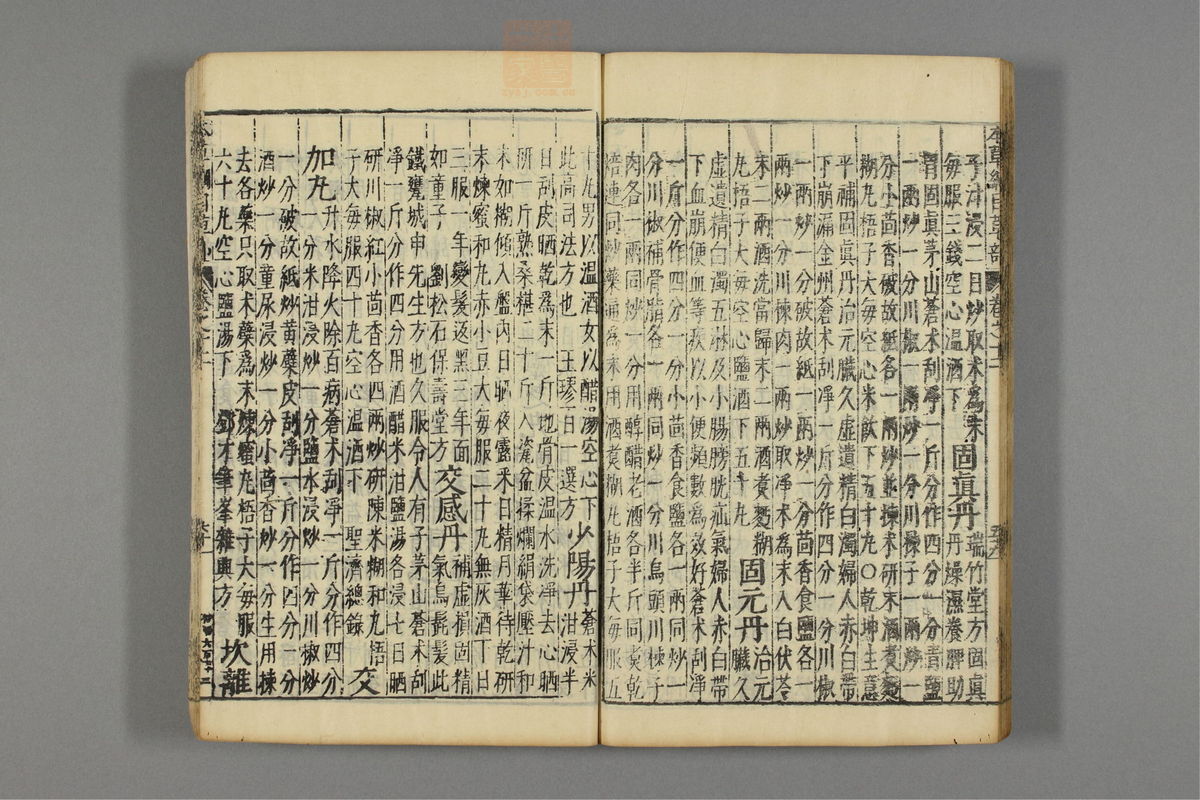 本草綱目草部 卷之十二
子汁浸二日炒取术為末
每服三錢空心温酒下 固眞丹 瑞竹堂方固眞
丹燥濕養脾助
胃固眞茅山蒼术刮淨一斤分作四分一分青鹽
一兩炒一分川椒一兩炒一分川楝子一兩炒一
分小茴香破故紙各一兩炒並揀术研末酒煑麪
糊丸梧子大每空心米飲下五十丸○乾坤生意
平補固眞丹治元臟久虛遺精白濁婦人赤白帶
下崩漏金州蒼术刮淨一斤分作四分一分川椒
一兩炒一分破故紙一兩炒一分茴香食鹽各一
兩炒一分川楝肉一兩炒取淨术為末入白伏苓
末二兩酒洗當歸末二兩酒煑麪糊
丸梧子大每空心鹽酒下五十丸 固元丹 治元
臟久
虛遺精白濁五淋及小腸膀胱疝氣婦人赤白帶
下血崩便血等疾以小便頻數為效好蒼术刮淨
一斤分作四分一分小茴香食鹽各一兩同炒一
分川椒補骨脂各一兩同炒一分川烏頭川楝子
肉各一兩同炒一分用醇醋老酒各半斤同煑乾
焙連同炒藥通為末用酒煑糊丸梧子大每服五
十丸男以温酒女以醋湯空心下
此高司法方也 王璆百一選方 少陽丹 蒼术米
泔浸半
日刮皮晒乾為末一斤地骨皮温水洗淨去心晒
研一斤熟桑椹二十斤入瓷盆揉爛絹袋壓汁和
末如糊傾入盤内日晒夜露采日精月華待乾研
末煉蜜和丸赤小豆大每服二十丸無灰酒下日
三服一年變髮返黑三年面
如童子 劉松石保壽堂方 交感丹 補虛損固精
氣烏髭髮此
鐵甕城申先生方也久服令人有子茅山蒼术刮
淨一斤分作四分用酒醋米泔鹽湯各浸七日晒
研川椒紅小茴香各四兩炒研陳米糊和丸梧
子大每服四十丸空心温酒下 聖濟總錄 交
加丸 升水降火除百病蒼术刮淨一斤分作四分
一分米泔浸炒一分鹽水浸炒一分川椒炒
一分破故紙炒黄蘗皮刮淨一斤分作四分一分
酒炒一分童尿浸炒一分小茴香炒一分生用揀
去各藥只取术蘗為末煉蜜丸梧子大每服
六十丸空心鹽湯下 鄧才筆峯雜興方 坎離